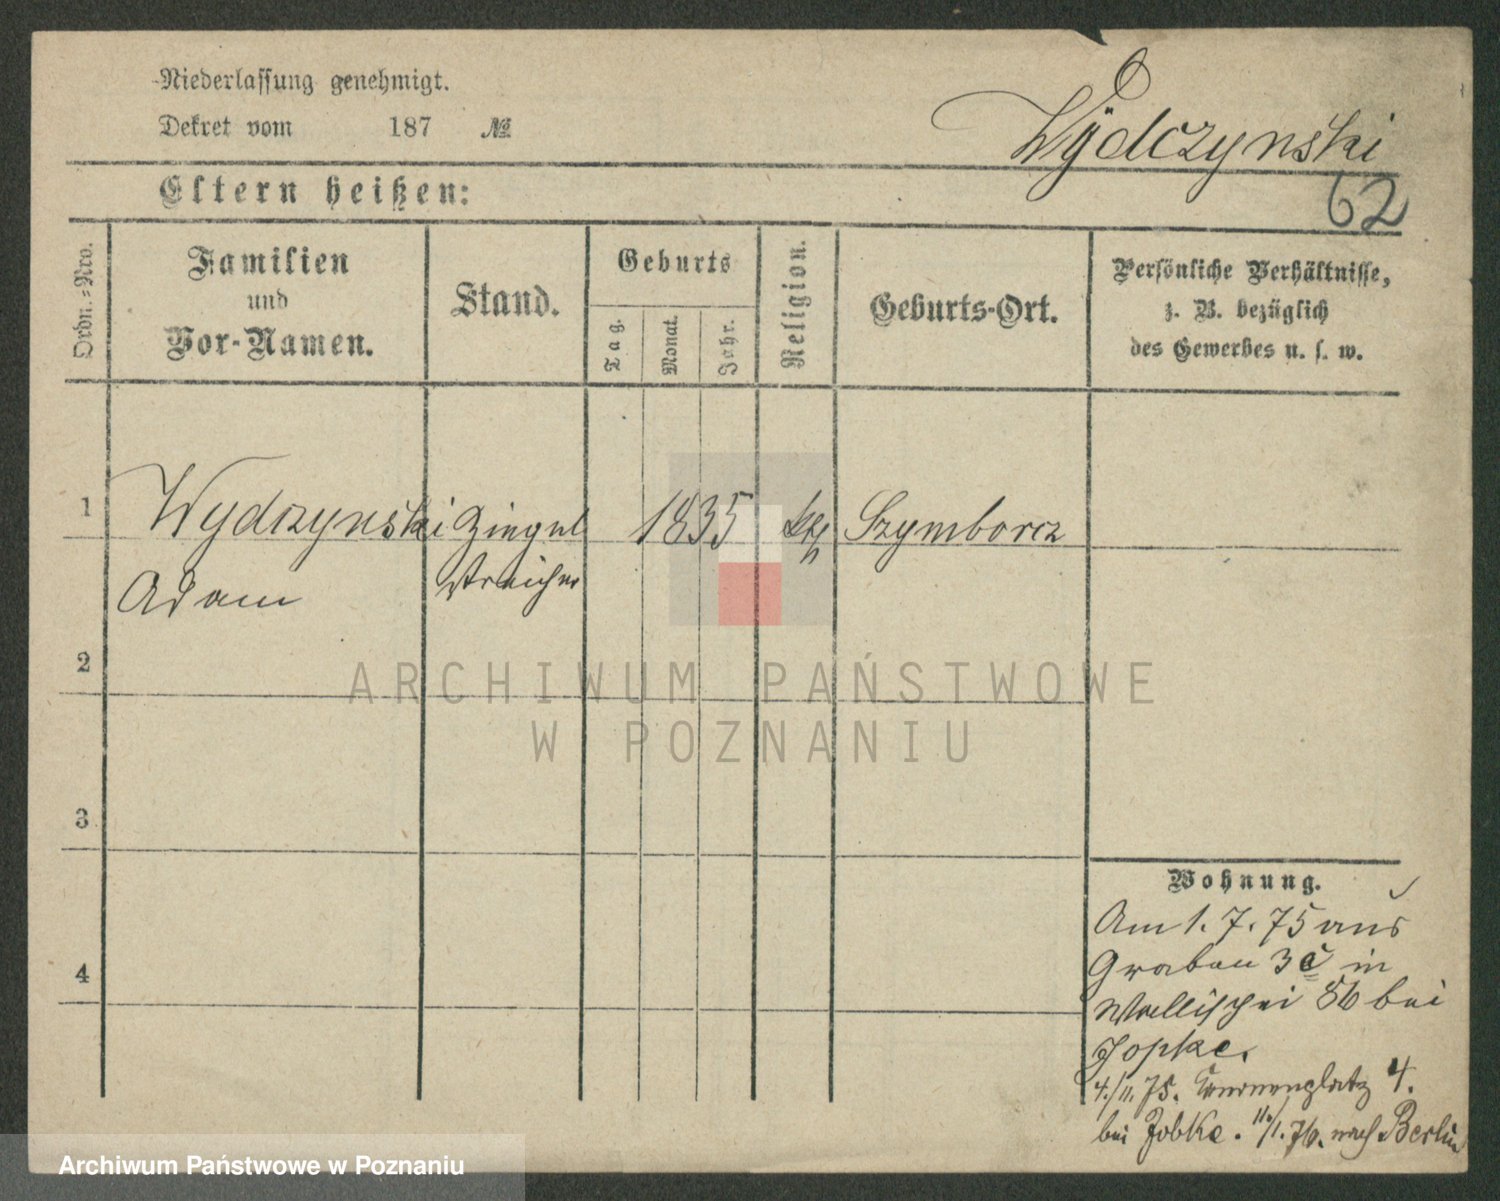 Niederlassung genehmigt.
Dekret vom 187 №
Wÿdczynski
Eltern heißen:
62
Ordn.=Nro.
Familien
und
Vor-Namen.
Stand.
Geburts
Tag.
Monat.
Jahr.
Religion.
Geburts-Ort.
Persönliche Verhältnisse,
z. B. bezüglich
des Gewerbes u. s. w.
1 Wydczynski Ziegel 1835 Szymborcz
Adam streicher
2
ARCHIWUM PAŃSTWOWE
W POZNANIU
3
Wohnung.
4
Am 1. 7. 75 aus
Graben 3c in
Wallischei 86 bei
Jopke.
4./11. 75. 4.
bei Jobke. 11./1. 76. nach Berlin
Archiwum Państwowe w Poznaniu